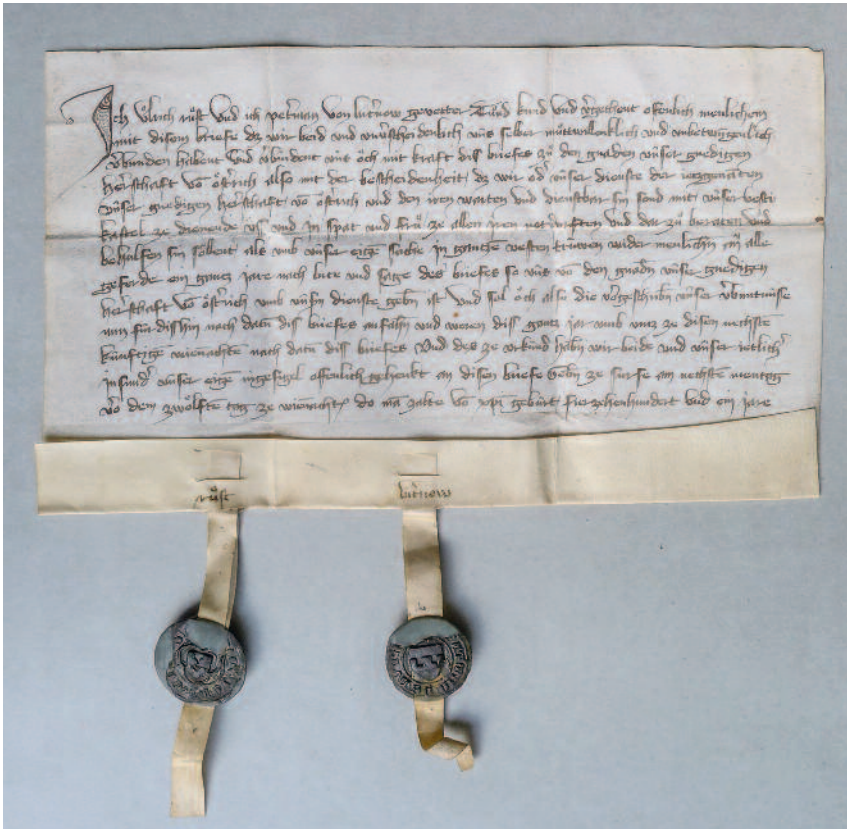 Ich uͦlrich ruͦst und ich peterman von lutͥnow gevetter Tuͦnd kund und vergehent offenlich menlichem
mit disem briefe dz wir beid und unverscheidenlich uns selber muͦtwilleklich und unbetwngenlich
verbunden habent und verbindent mit oͧch mit kraft diss briefes zuͦ den gnaden unser gnedigen
herschaft vo oͤstrich also mit der bescheidenheit dz wir od unser dienste der vorgenanten
unser gnedigen herschaft vo oͤstrich und den iren warten und dienstbar sin sond mit unser vesti
kastel ze dienende us und in spat und fruͦ ze allen iren notdurften und dar zuͦ beraten und
behulfen sin soͤllent als umb unser eige sache in gantze vesten truwen wider menlichen an alle
geferde ein gantz jare nach lute und sage des briefes so uns vo den gnadn unser gnedigen
herschaft vo oͤstrich umb unsn dienste gebn ist und sol oͧch also die vorgeschribn unser verbuntnusse
nun fúrdishin nach datu dis briefes anfahn und weren diss gantz jar umb untz ze disen nechste
kúnftige wienachte nach datu diss briefes Und des ze urkund habn wir beide und unser ietlicher
insunder unser eige ingesigel offenlich gehenkt an disen briefe Gebn ze surse am nechste mentag
vor dem zwoͤlfte tag ze wienacht do ma zalte vo xpi geburt fierzehenhundert und ein jare
ruͦst lutͥnow